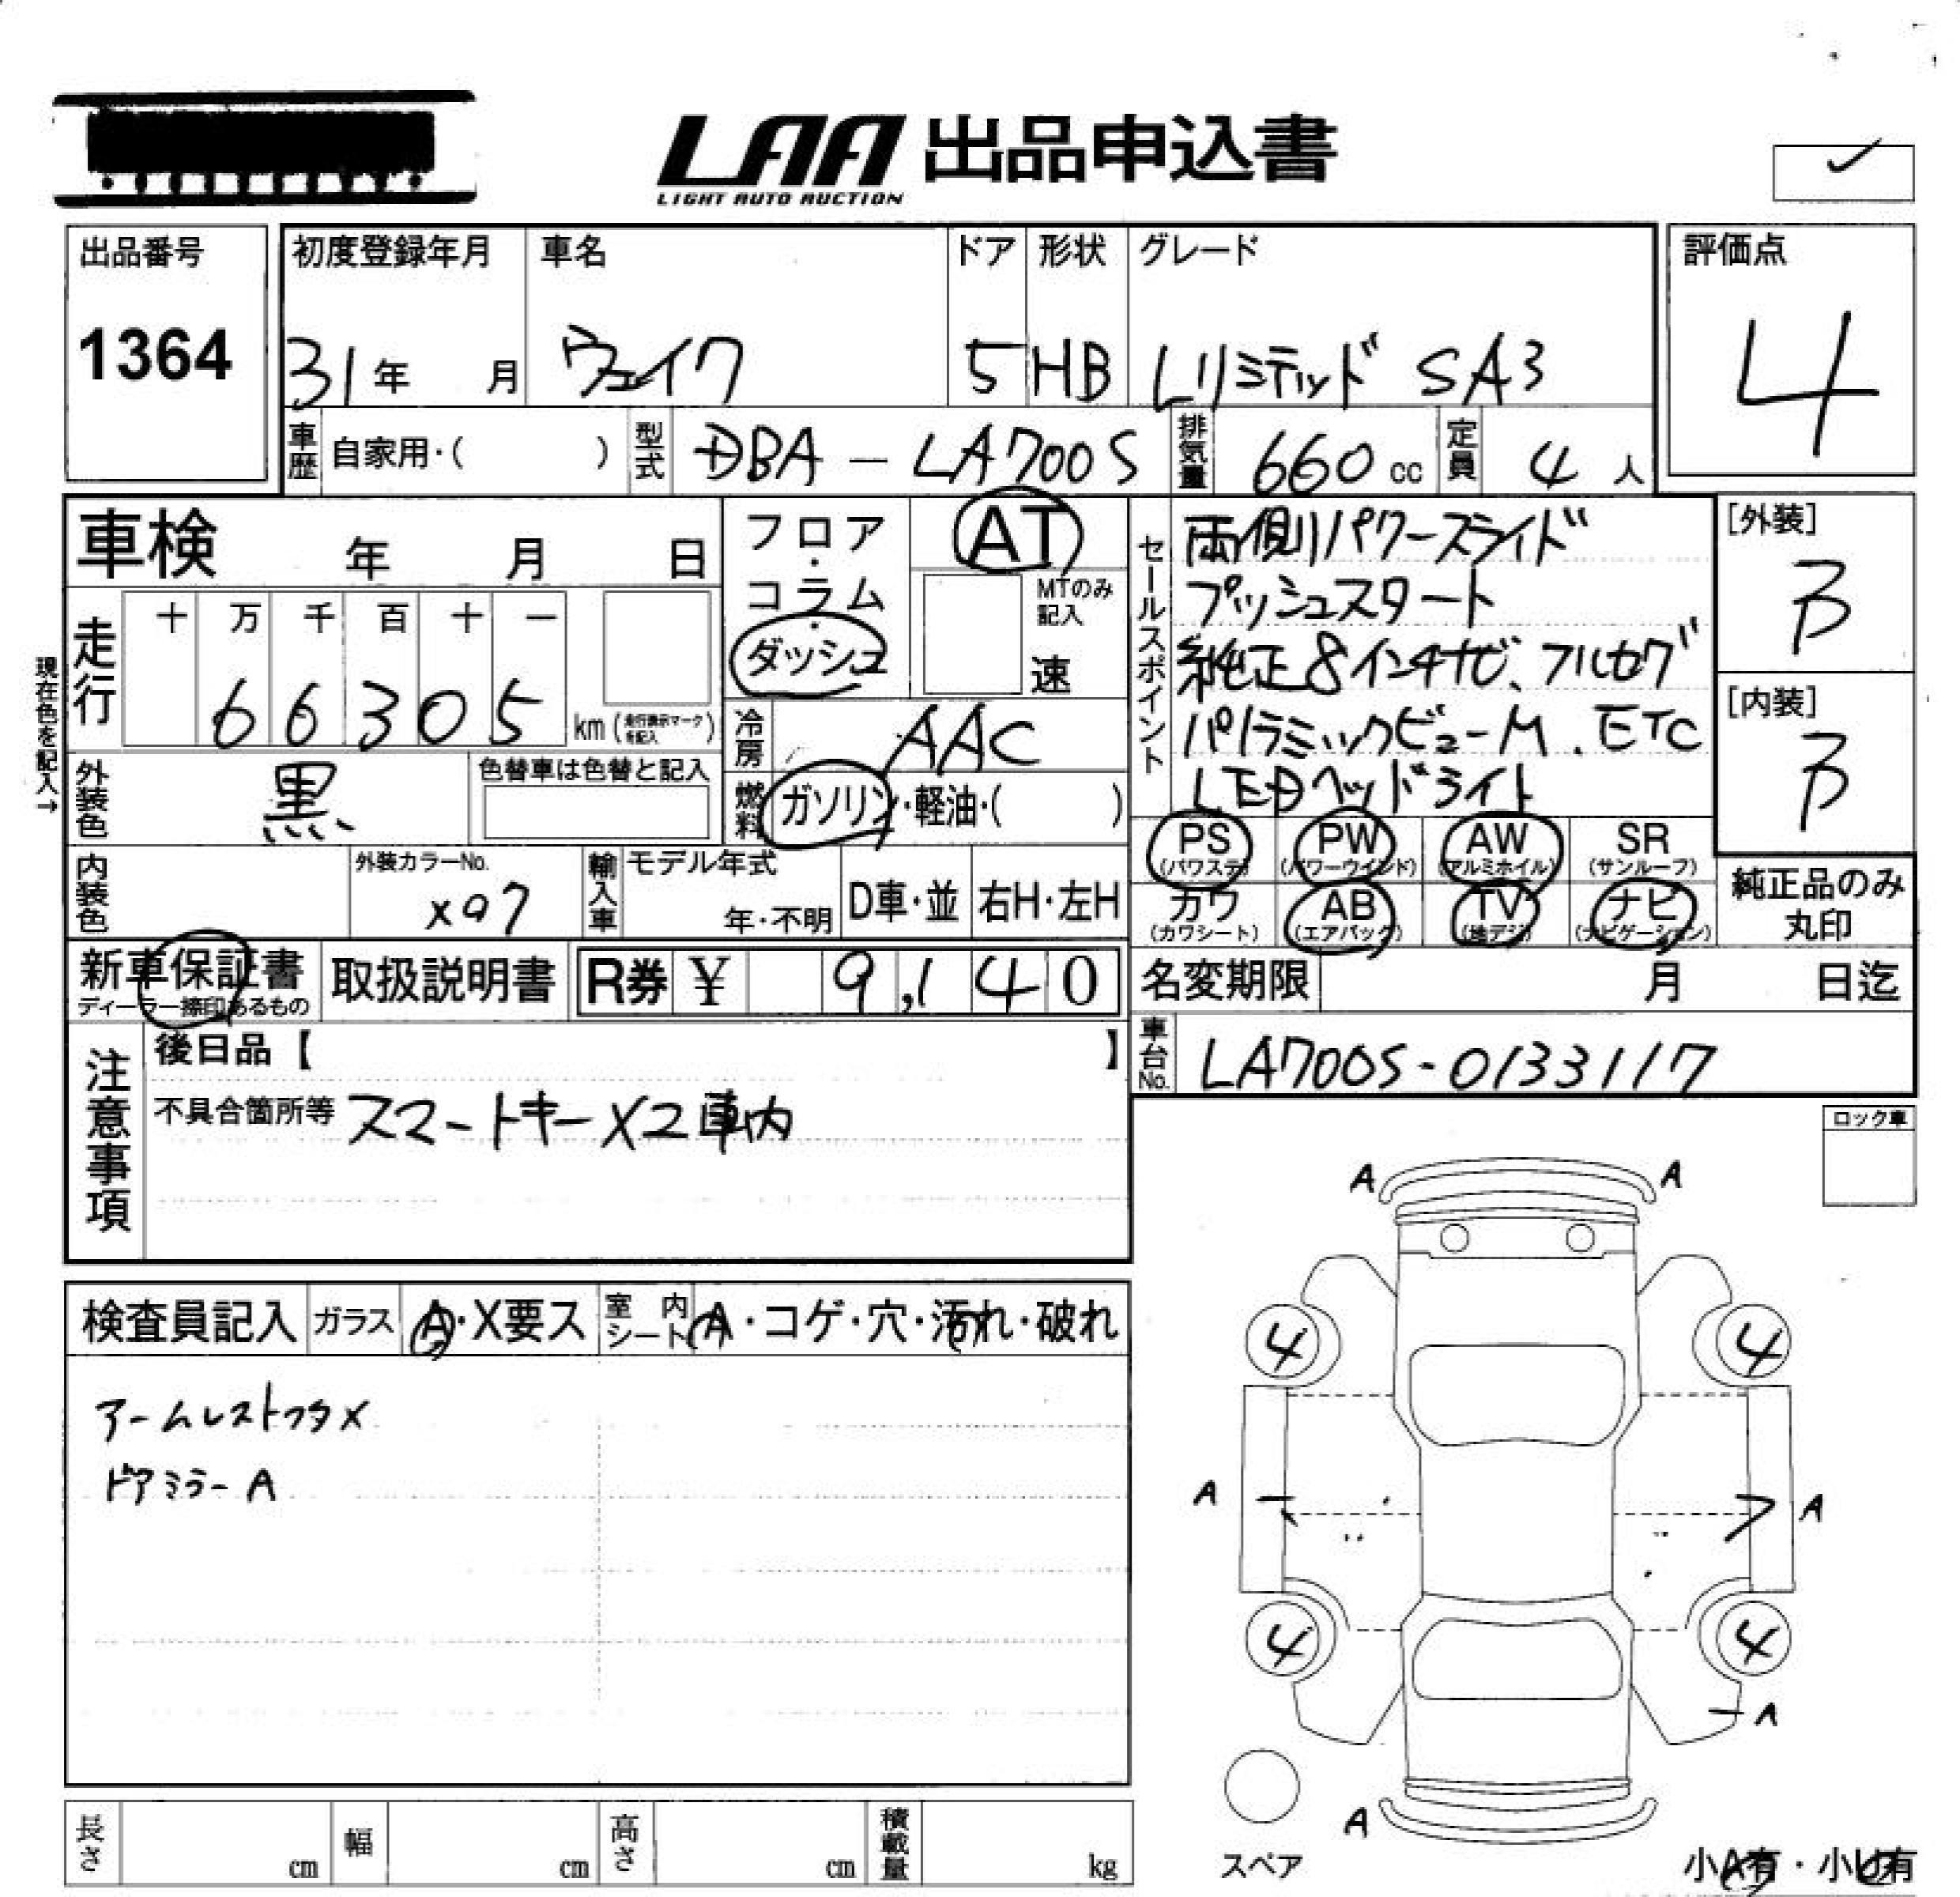 LAA 出品申込書
LIGHT AUTO AUCTION
出品番号
1364
初度登録年月
31年 月
車名
ウェイク
ドア
5
形状
HB
グレード
Lリミテッド SA3
評価点
4
車歴 自家用・( )
型式 DBA-LA700S
排気量 660 cc
定員 4 人
車検 年 月 日
フロア・コラム・ダッシュ
AT
MTのみ記入
速
走行
十 万 千 百 十 一
6 6 3 0 5 km (走行表示マークを記入)
現在色を記入→
冷房 AAC
外装色 黒
色替車は色替と記入
燃料 ガソリン・軽油・( )
内装色
外装カラーNo.
X07
輸入車 モデル年式
年・不明
D車・並
右H・左H
セールスポイント
両側パワースライド
プッシュスタート
純正8インチナビ、フルセグ
パノラミックビューM、ETC
LEDヘッドライト
[外装]
B
[内装]
B
PS (パワステ)
PW (パワーウインド)
AW (アルミホイル)
SR (サンルーフ)
カワ (カワシート)
AB (エアバック)
TV (地デジ)
ナビ (ナビゲーション)
純正品のみ丸印
新車保証書
ディーラー捺印あるもの
取扱説明書
R券 ¥ 9,140
名変期限 月 日迄
車台No. LA700S-0133117
注意事項
後日品【 】
不具合箇所等 スマートキーX2車内
ロック車
検査員記入
ガラス A・X要ス
室内シート A・コゲ・穴・汚れ・破れ
アームレストフタX
ドアミラーA
A A
4 4
A A
4 4
A
A
スペア
小A有・小U有
長さ cm
幅 cm
高さ cm
積載量 kg